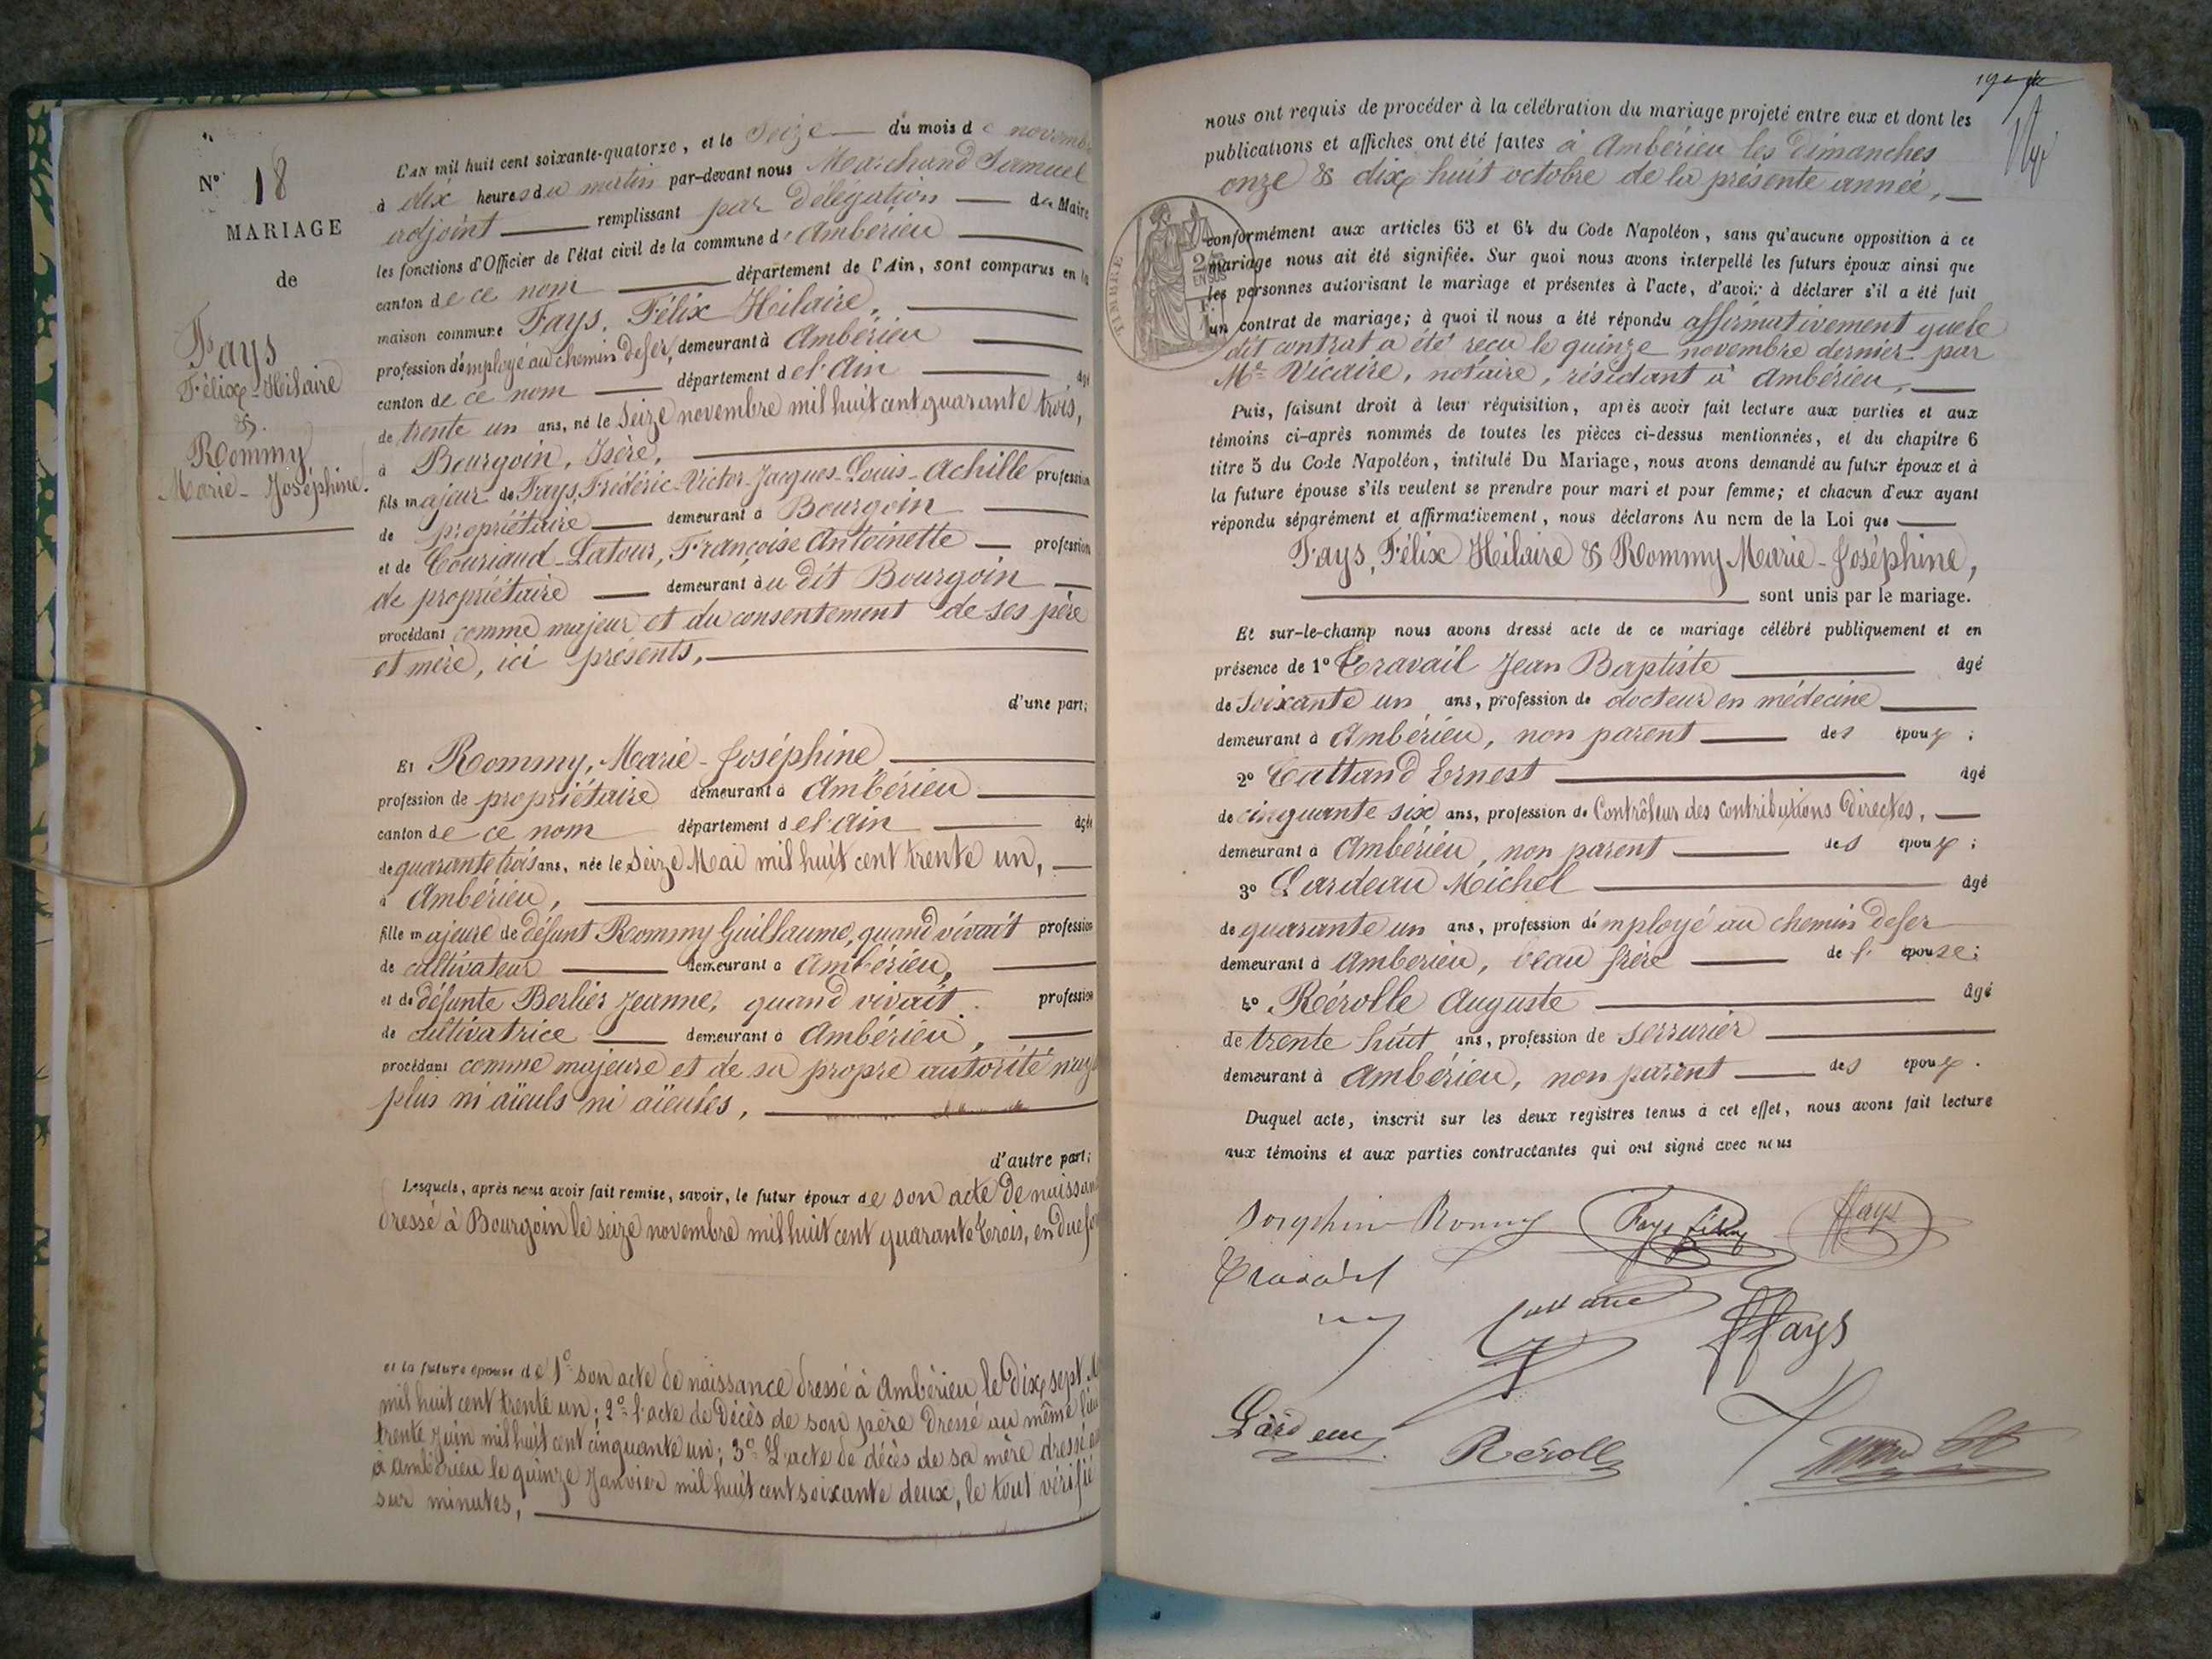 N° 18
MARIAGE
de
Fays
Félix-Hilaire
&
Rommy
Marie-Joséphine.
L'AN mil huit cent soixante-quatorze, et le Seize du mois de novemb
à dix heures du matin par-devant nous Marchand Samuel
adjoint remplissant par délégation du Maire
les fonctions d'Officier de l'état civil de la commune d'Ambérieu
canton de ce nom département de l'Ain, sont comparus en la
maison commune Fays, Félix Hilaire,
profession d'employé au chemin de fer, demeurant à Ambérieu
canton de ce nom département de l'Ain âgé
de trente un ans, né le Seize novembre mil huit cent quarante trois,
à Bourgoin, Isère,
fils majeur de Fays, Frédéric-Victor-Jacques-Louis-Achille profession
de propriétaire demeurant à Bourgoin
et de Couriaud-Latour, Françoise Antoinette profession
de propriétaire demeurant au dit Bourgoin
procédant comme majeur et du consentement de ses père
et mère, ici présents,
d'une part;
Et Rommy, Marie-Joséphine
profession de propriétaire demeurant à Ambérieu
canton de ce nom département de l'Ain âgée
de quarante trois ans, née le Seize Mai mil huit cent trente un,
à Ambérieu,
fille majeure de défunt Rommy Guillaume, quand vivait profession
de cultivateur demeurant à Ambérieu,
et de défunte Berlier Jeanne, quand vivait profession
de cultivatrice demeurant à Ambérieu,
procédant comme majeure et de sa propre autorité n'ay
plus ni aïeuls ni aïeules,
d'autre part;
Lesquels, après nous avoir fait remise, savoir, le futur époux de son acte de naissan
dressé à Bourgoin le seize novembre mil huit cent quarante trois, en due fo
et la future épouse de 1° son acte de naissance dressé à Ambérieu le dix sept M
mil huit cent trente un; 2° l'acte de décès de son père dressé au même lieu
trente Juin mil huit cent cinquante un; 3° L'acte de décès de sa mère dressé
à Ambérieu le quinze Janvier mil huit cent soixante deux, le tout vérifié
sur minutes,
nous ont requis de procéder à la célébration du mariage projeté entre eux et dont les
publications et affiches ont été faites à Ambérieu les dimanches
onze & dix huit octobre de la présente année,
TIMBRE
2
EN SUS
conformément aux articles 63 et 64 du Code Napoléon, sans qu'aucune opposition à ce
mariage nous ait été signifiée. Sur quoi nous avons interpellé les futurs époux ainsi que
les personnes autorisant le mariage et présentes à l'acte, d'avoir à déclarer s'il a été fait
un contrat de mariage; à quoi il nous a été répondu affirmativement que le
dit contrat a été reçu le quinze novembre dernier par
Me Vicaire, notaire, résidant à Ambérieu,
Puis, faisant droit à leur réquisition, après avoir fait lecture aux parties et aux
témoins ci-après nommés de toutes les pièces ci-dessus mentionnées, et du chapitre 6
titre 5 du Code Napoléon, intitulé Du Mariage, nous avons demandé au futur époux et à
la future épouse s'ils veulent se prendre pour mari et pour femme; et chacun d'eux ayant
répondu séparément et affirmativement, nous déclarons Au nom de la Loi que
Fays, Félix Hilaire & Rommy Marie-Joséphine,
sont unis par le mariage.
Et sur-le-champ nous avons dressé acte de ce mariage célébré publiquement et en
présence de 1° Travail Jean Baptiste âgé
de Soixante un ans, profession de docteur en médecine
demeurant à Ambérieu, non parent des époux;
2° Cattand Ernest âgé
de cinquante six ans, profession de Contrôleur des contributions directes,
demeurant à Ambérieu, non parent des époux;
3° Lardeau Michel âgé
de quarante un ans, profession d'employé au chemin de fer
demeurant à Ambérieu, beau frère de l'épouse;
4° Rérolle Auguste âgé
de trente huit ans, profession de serrurier
demeurant à Ambérieu, non parent des époux.
Duquel acte, inscrit sur les deux registres tenus à cet effet, nous avons fait lecture
aux témoins et aux parties contractantes qui ont signé avec nous
Josephine Rommy Fays Félix Fays
Travail
Fays
Lardeau Rérolle